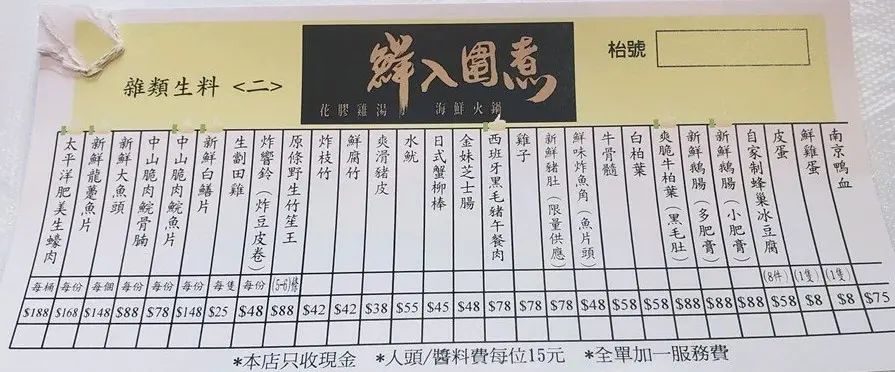 枱號
鮮入圍煮
雜類生料 <二>
花膠雞湯 海鮮火鍋
太平洋肥美生蠔肉
新鮮龍躉魚片
新鮮大魚頭
中山脆肉鯇骨腩
中山脆肉鯇魚片
新鮮白鱔片
生劏田雞
炸響鈴（炸豆皮卷）
原條野生竹笙王
炸枝竹
鮮腐竹
爽滑豬皮
水魷
日式蟹柳棒
金妹芝士腸
西班牙黑毛豬午餐肉
雞子
新鮮豬肚（限量供應）
鮮味炸魚角（魚片頭）
牛骨髓
白柏葉
爽脆牛柏葉（黑毛肚）
新鮮鵝腸（多肥膏）
新鮮鵝腸（小肥膏）
自家制蜂巢冰豆腐
皮蛋
鮮雞蛋
南京鴨血
每桶 每份 每個 每份 每份 每份 每隻 每份 (5-6)條 (8件) (1隻) (1隻)
$188 $168 $148 $88 $78 $148 $25 $48 $88 $42 $42 $38 $55 $45 $48 $78 $78 $78 $48 $58 $58 $88 $88 $88 $58 $8 $8 $75
*本店只收現金 *人頭/醬料費每位15元 *全單加一服務費